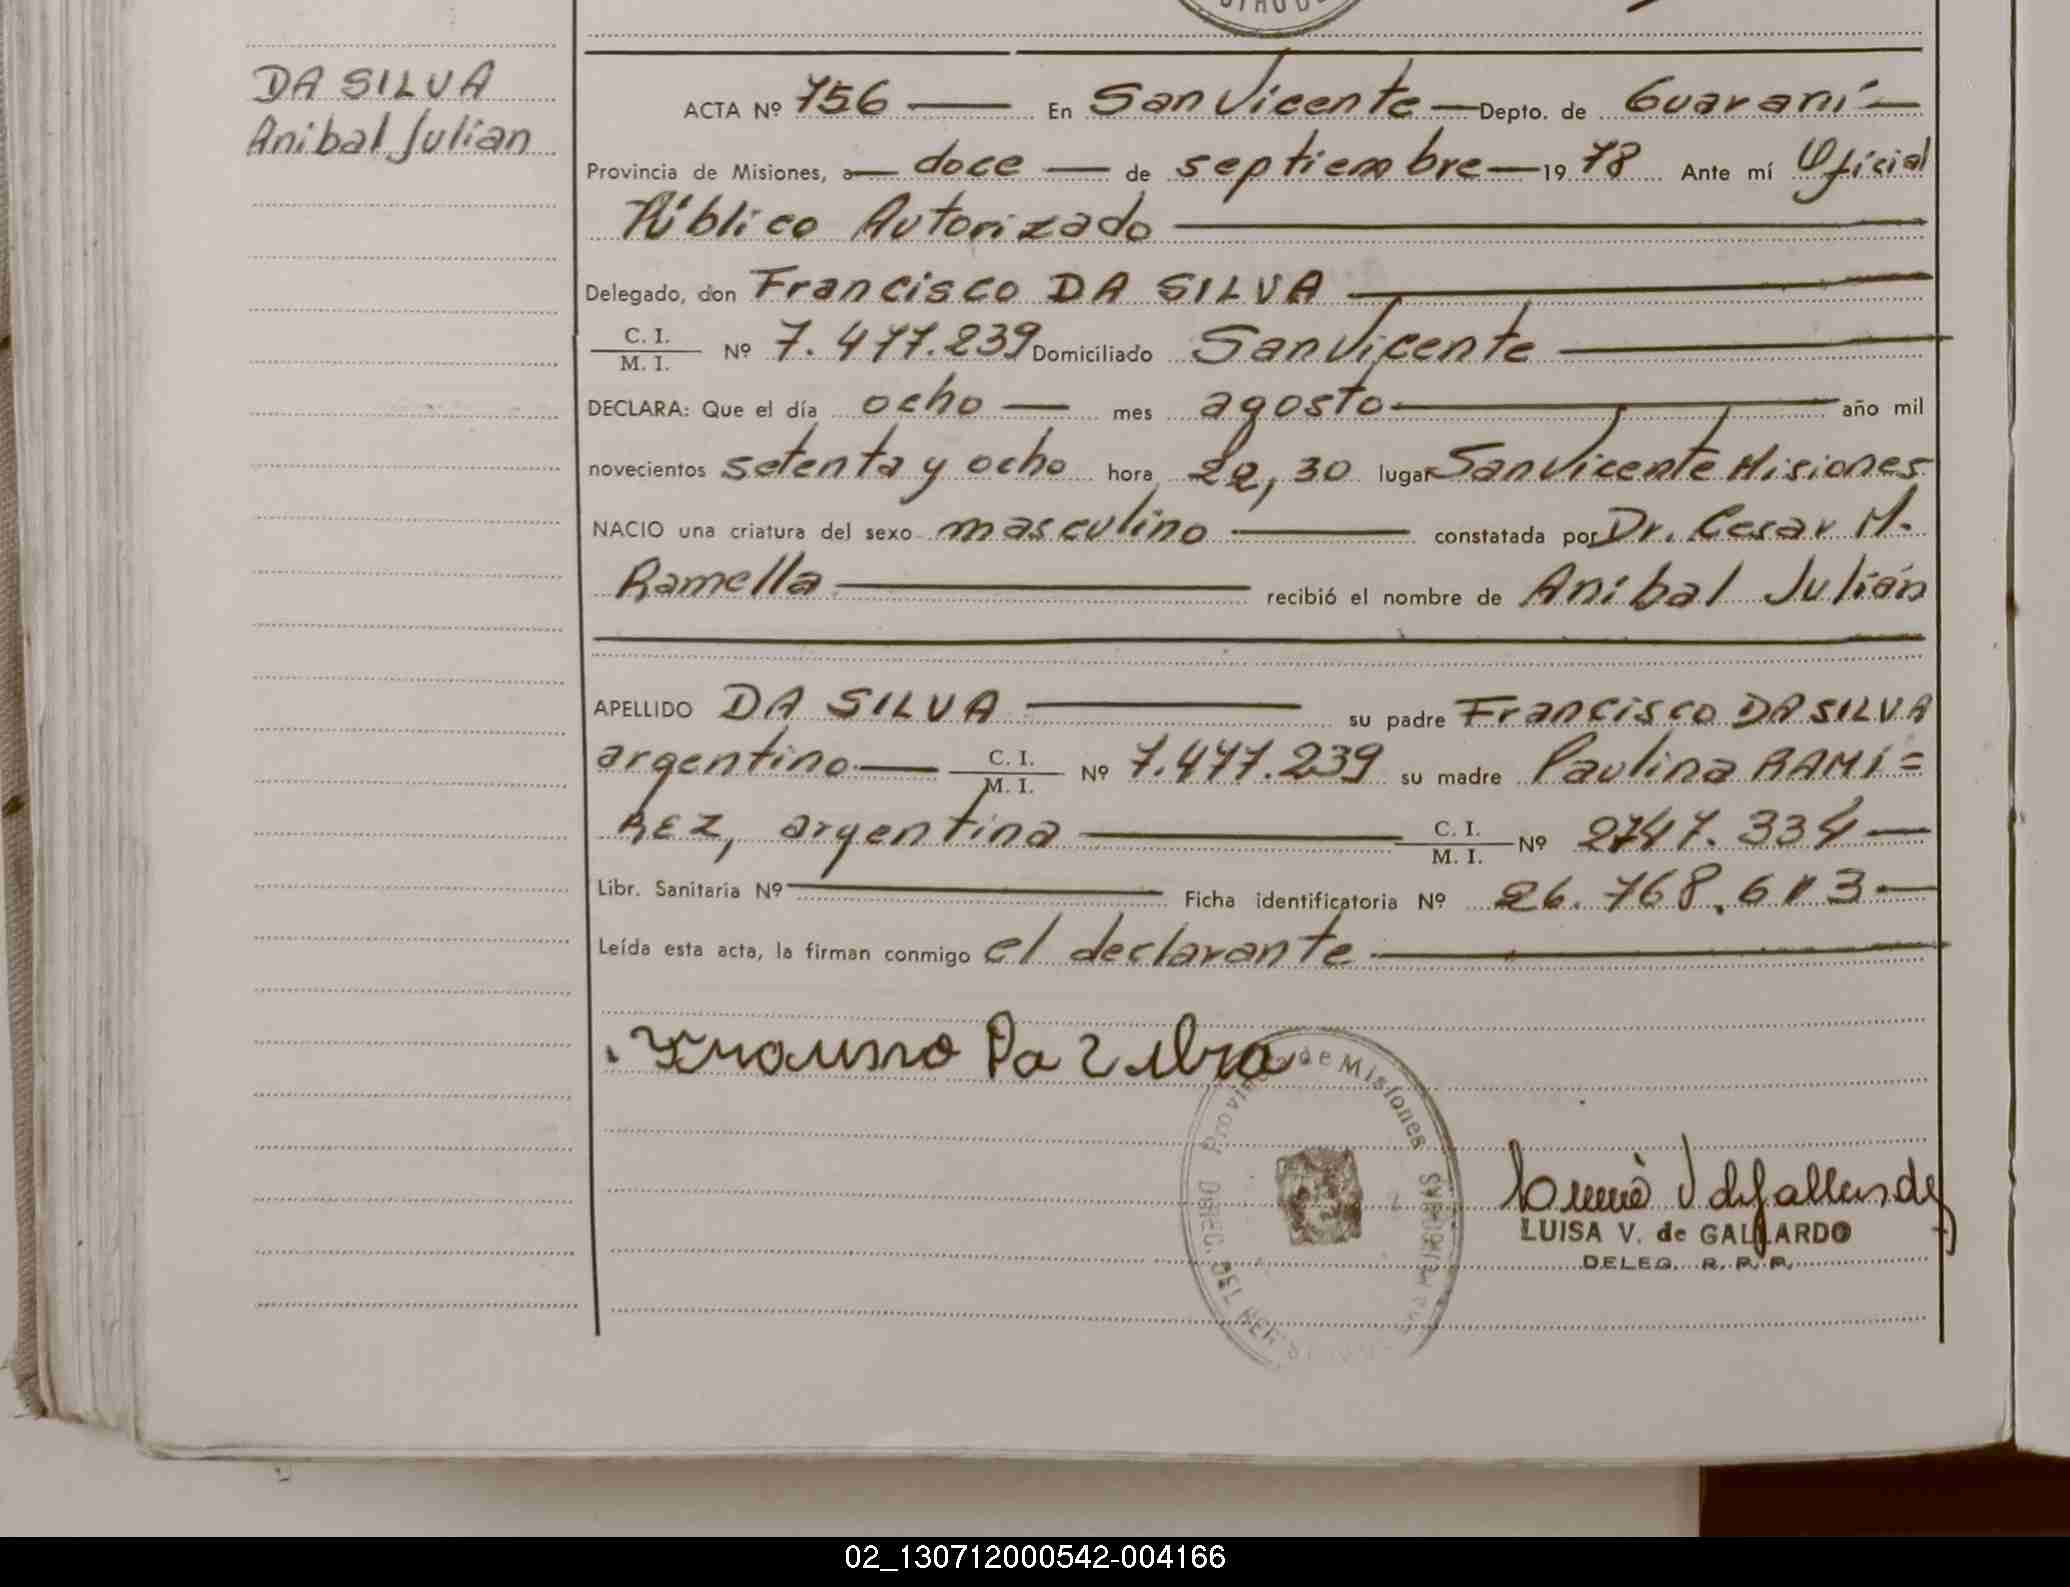 DA SILVA
Anibal Julian
ACTA Nº 756 — En San Vicente — Depto. de Guaraní —
Provincia de Misiones, a — doce — de septiembre — 1978 Ante mí Oficial
Público Autorizado
Delegado, don Francisco DA SILVA
C. I.
M. I. Nº 7.477.239 Domiciliado San Vicente
DECLARA: Que el día ocho — mes agosto — año mil
novecientos setenta y ocho hora 22,30 lugar San Vicente Misiones
NACIO una criatura del sexo masculino — constatada por Dr. Cesar M.
Ramella — recibió el nombre de Anibal Julián
APELLIDO DA SILVA — su padre Francisco DA SILVA
argentino — C. I. M. I. Nº 7.477.239 su madre Paulina RAMI=
REZ, argentina — C. I. M. I. Nº 2747.334 —
Libr. Sanitaria Nº — Ficha identificatoria Nº 26.768.613 —
Leída esta acta, la firman conmigo el declarante —
Provincia de Misiones
DELEG. DEL
LUISA V. de GALLARDO
DELEG. R. P. P.
02_130712000542-004166